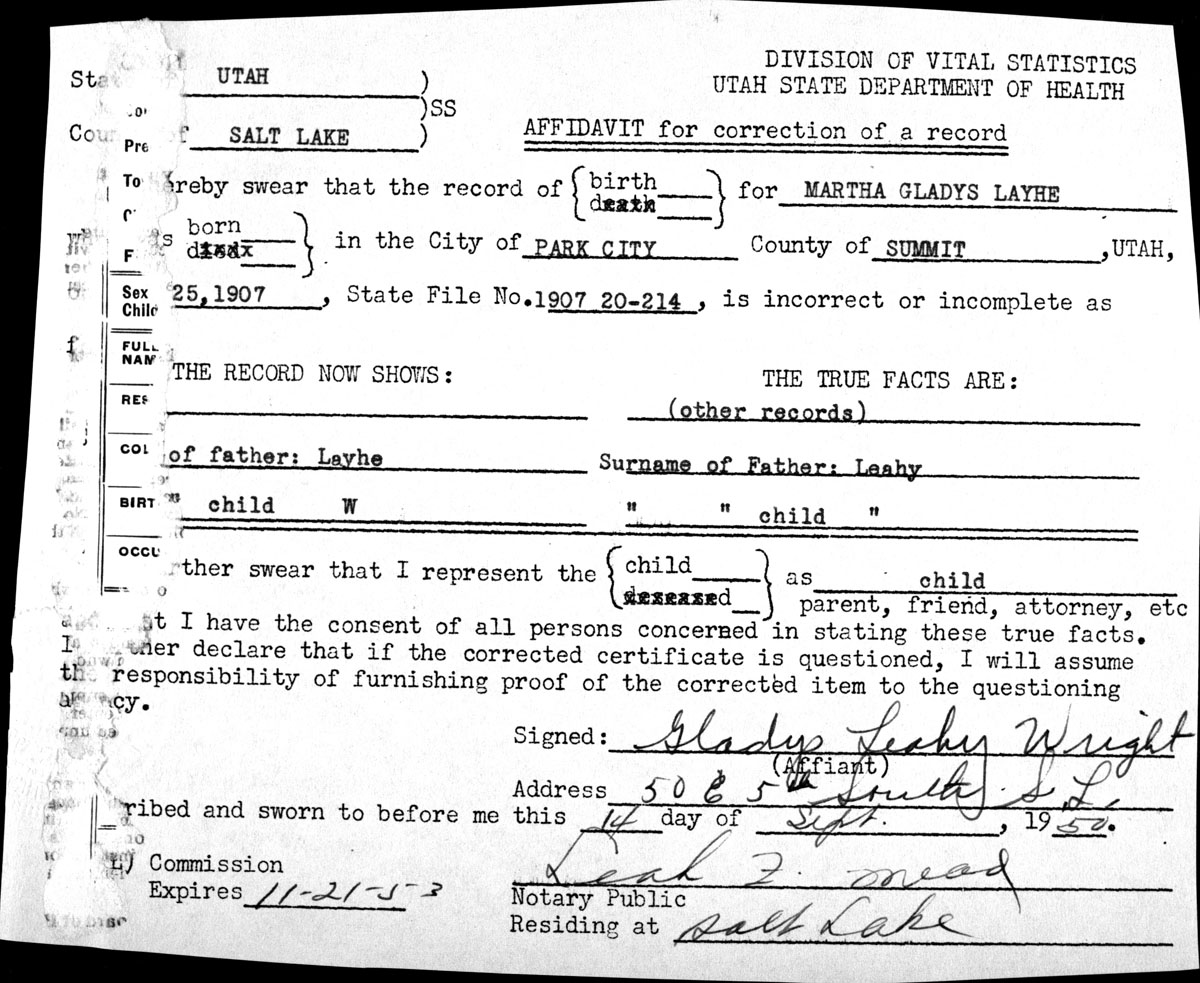 DIVISION OF VITAL STATISTICS
UTAH STATE DEPARTMENT OF HEALTH
Sta UTAH )
)SS
Cou f SALT LAKE )
AFFIDAVIT for correction of a record
Pre
To
ereby swear that the record of { birth____ death } for MARTHA GLADYS LAYHE
born____
s died } in the City of PARK CITY County of SUMMIT ,UTAH,
F
Sex
Child
25,1907 , State File No.1907 20-214 , is incorrect or incomplete as
f
FULL
NAM
THE RECORD NOW SHOWS: THE TRUE FACTS ARE:
RES
(other records)
COL
of father: Layhe Surname of Father: Leahy
BIRT
" child W " " child "
OCCU
rther swear that I represent the { child____ deseased__ } as child
parent, friend, attorney, etc
t I have the consent of all persons concerned in stating these true facts.
I ther declare that if the corrected certificate is questioned, I will assume
the responsibility of furnishing proof of the corrected item to the questioning
a cy.
Signed: Gladys Leahy Wright
(Affiant)
Address 50 E 5th South S L.
ribed and sworn to before me this 14 day of Sept. , 19 50.
L) Commission
Expires 11-21-53
Leah Z. Mead
Notary Public
Residing at Salt Lake